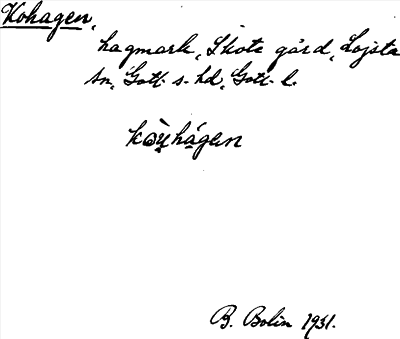 Kohagen,
hagmark, Skote gård, Lojsta
sn, Gotl. s. hd, Gotl. l.
kòu̯hágen
B. Bolin 1931.